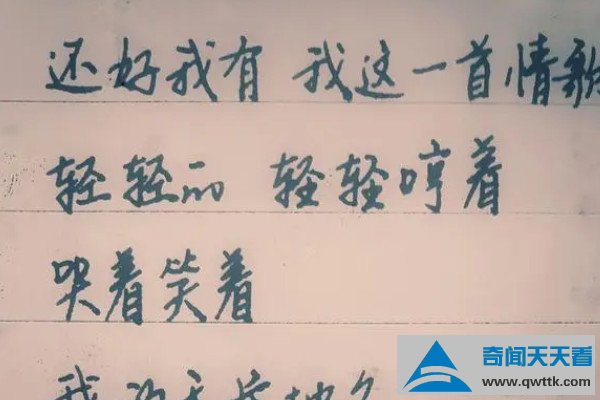 还好我有 我这一首情歌
轻轻的 轻轻哼着
哭着笑着
我的天长地久
奇闻天天看
www.qwttk.com